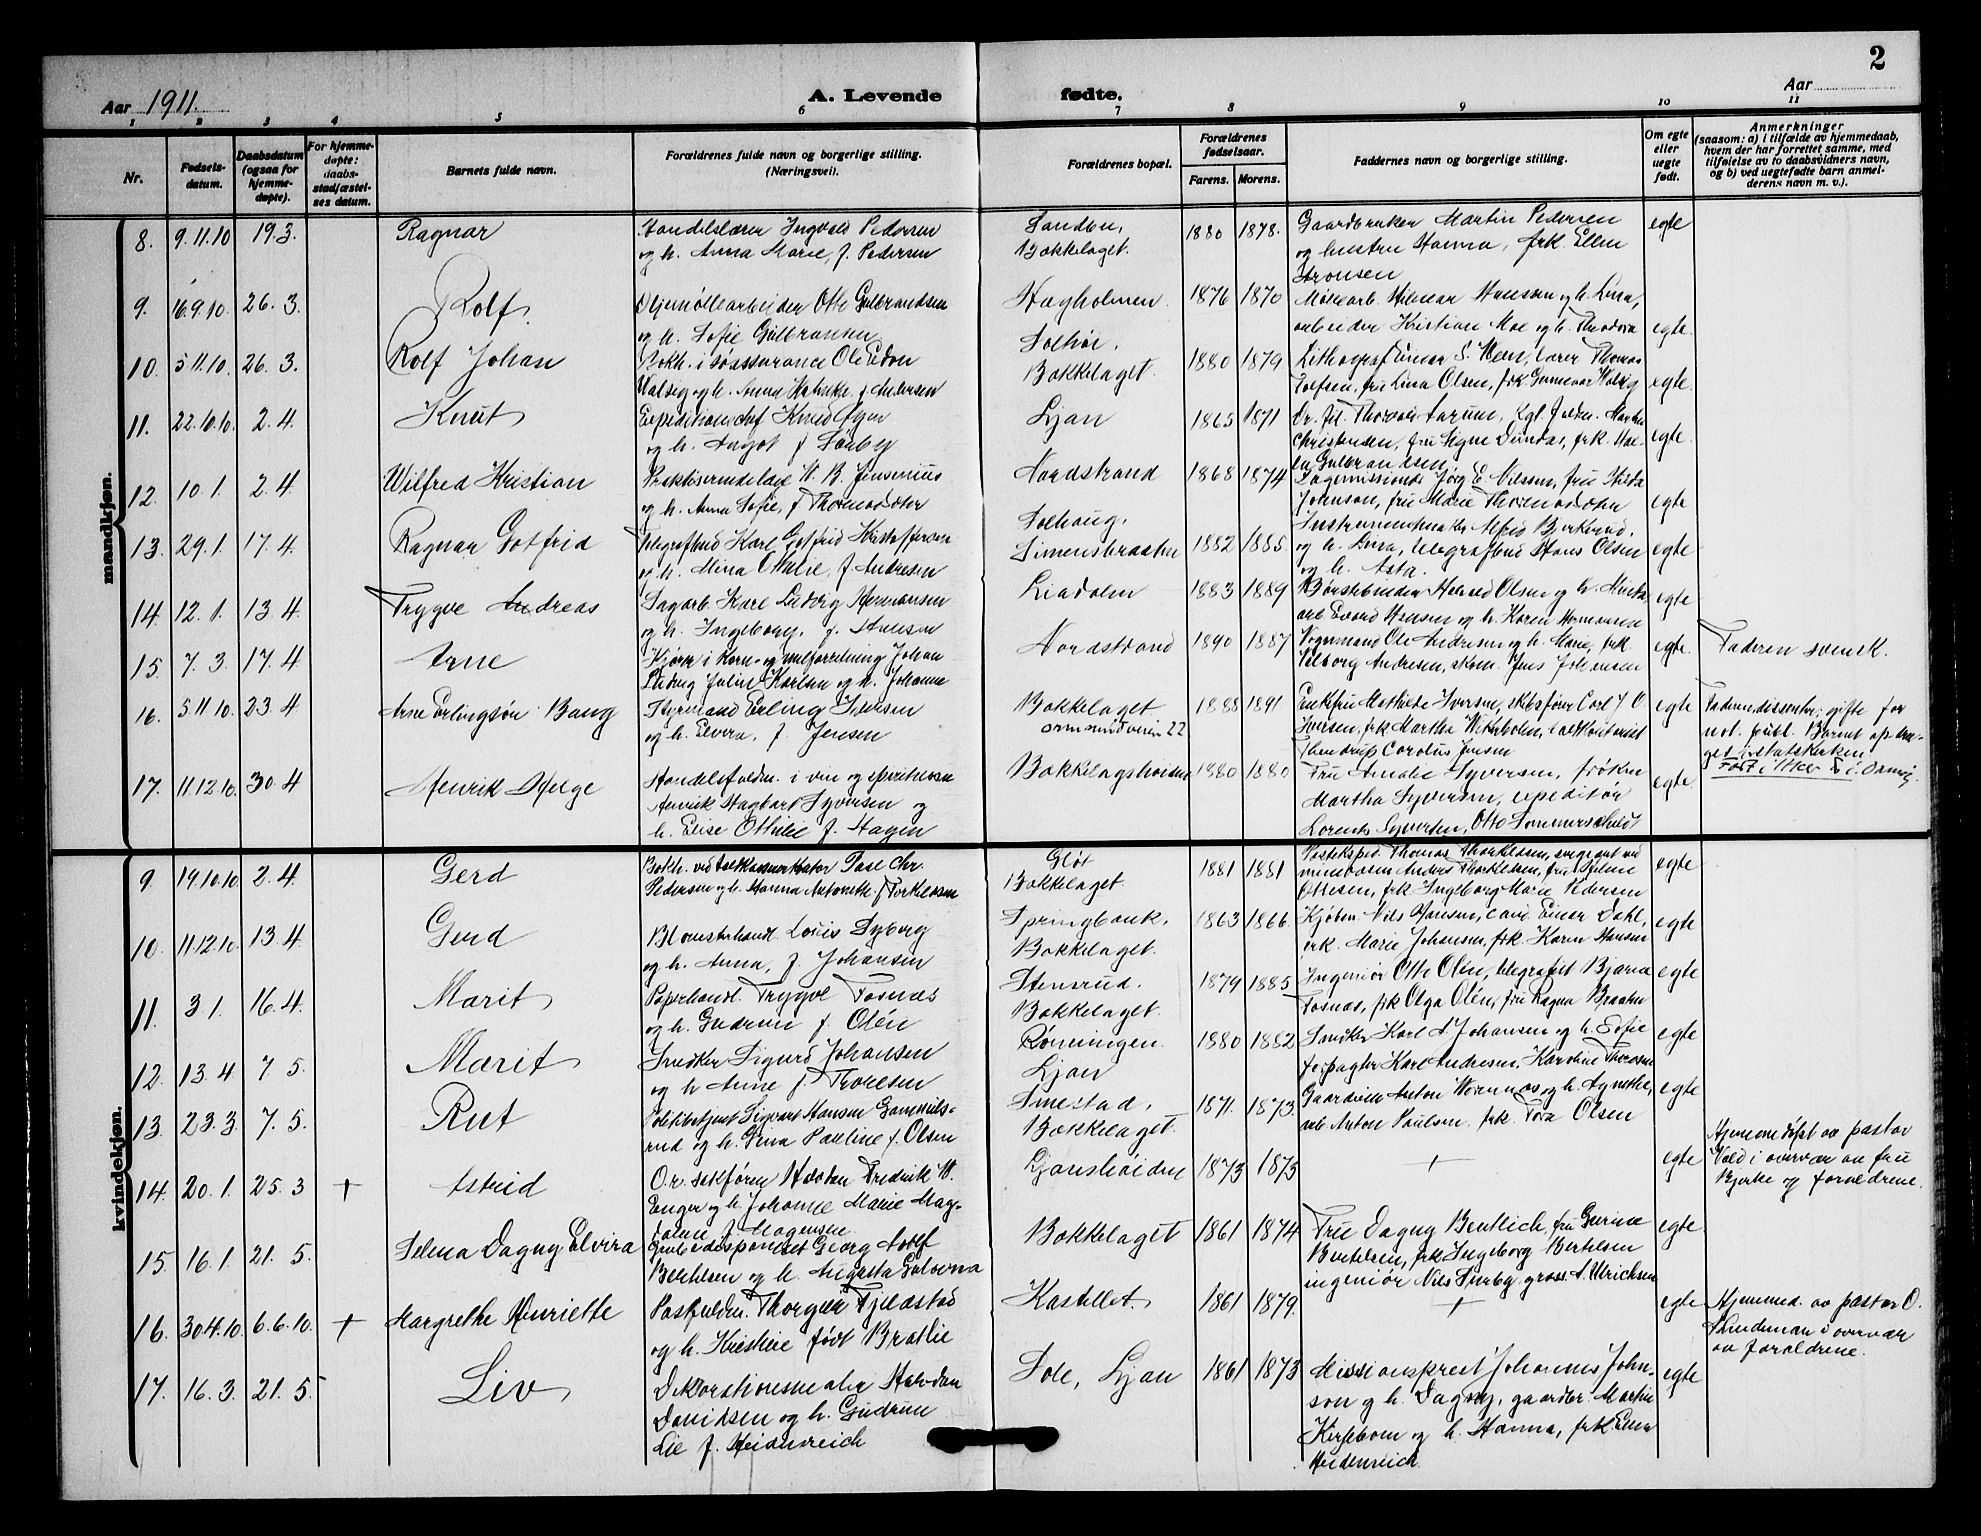 2
Aar 1911.
A. Levende fødte.
Aar
1 2 3 4 5 6 7 8 9 10 11
Nr.
Fødsels-
datum.
Daabsdatum
(ogsaa for
hjemme-
døpte).
For hjemme-
døpte:
daabs-
stadfæstel-
ses datum.
Barnets fulde navn.
Forældrenes fulde navn og borgerlige stilling.
(Næringsvei).
Forældrenes bopæl.
Forældrenes
fødselsaar.
Farens. Morens.
Faddernes navn og borgerlige stilling.
Om egte
eller
uegte
født.
Anmerkninger
(saasom: a) i tilfælde av hjemmedaab,
hvem der har forrettet samme, med
tilføielse av to daabsvidners navn,
og b) ved uegtefødte barn anmel-
derens navn m. v.).
mandkjøn.
8. 9.11.10 19.3. Ragnar
Handelslærer Ingvald Pedersen
og h. Anna Marie, f. Pedersen
Sandbu,
Bækkelaget.
1880 1878.
Gaardbruker Martin Pedersen
og hustru Hanna, frk Ellen
Aronsen
egte
9. 16.9.10 26.3. Rolf
Oljemøllearbeider Otto Gulbrandsen
og h. Sofie Gulbransen
Hagholmen.
1876 1870
Møllearb. Hilmar Hanssen og h. Lina,
arbeider Kristian Moe og h. Theodora
egte.
10. 5.11.10. 26.3. Rolf Johan
Bokh. i assurance Ole Edon
Walseg og h. Anna f. Andersen
Solhøi.
Bækkelaget.
1880 1879
Lithograf Einar S. Wem, lærer Thomas
Tolfsen, fru Lina Olsen, frk. Gunvor Walseg
egte.
11. 22.10.10. 2.4. Knut
Expeditionschef Knud Øyen
og h. Ingot f Sørby
Ljan
1865 1871
Dr. fil. Thorvald Aarum, Kgl. fuldm. Martin
Christensen, fru Signe Dundas, frk. Hae-
la Gulbrandsen
egte.
12. 10.1. 2.4. Wilfred Kristian
Praktiserende læge H. B. Jenserius
og h. Anna Sofie, f Thormodsæter
Nordstrand
1868 1874
Lægemissionær Jørg. E. Nilssen, fru Hilda
Johnson, fru Marie Thormodsæter
egte
13. 29.1. 17.4. Ragnar Gotfrid
Telegrafbud Karl Gotfrid Kristoffersen
og h. Mina Othilie, f. Andresen
Solhaug,
Simensbraaten
1882 1885.
Instrumentmaker Alfred Birkerud,
og h. Lina, telegrafbud Hans Olsen
og h. Asta.
egte
14. 12.1. 13.4 Trygve Andreas
Sagarb. Karl Ludvig Hermansen
og h. Ingeborg, f. Hansen
Liadalen
1883 1889
Børstebinder Halvard Olsen og h. Hulda,
arb Edvard Hansen og h. Karen Hermansen
egte
15. 7.3. 17.4 Arne
Kjører i korn- og melforretning Johan
Ludvig Julius Karlsen og h. Johanne
Nordstrand
1890 1887
Vognmand Ole Andresen og h. Marie, frk.
Valborg Andresen, skom. Jens Johansen
egte.
Faderen svensk.
16. 5.11.10. 23.4 Arne Erlingsøn Bang
Styrmand Erling Iversen
og h. Elvira, f. Jensen
Bækkelaget
ormsundveien 22
1888 1891
Enkefru Mathilde Iversen, skibsfører Carl J. O.
Iversen, frk Martha Wikholm,
Thendrup Carolus Jensen
egte
Faderen dissenter; gifte for
not. publ. Barnet opdra-
ges i statskirken
født i Aker
17. 11.12.10. 30.4 Henrik Helge
Handelsfuldm. i vin og spirituosa
Henrik Hagbart Syversen og
h. Elise Othilie f. Hagen
Bækkelagshøiden
1880 1880
Fru Amalie Syversen, frøken
Martha Syversen, expeditør
Lorents Syversen, Otto Sommerschildt
egte
kvindekjøn.
9 19.10.10. 2.4. Gerd
Bokh. ved Pase Chr.
Pedersen og h. Hanna Antonette f. Torkleson
Gløt
Bækkelaget.
1881 1881
Postekspd. Thomas Thorklasen, sergeant ved
minevæsen Anders Thorkildsen, fru
Ottesen, frk Ingeborg Marie Pedersen
egte
10. 11.12.10. 13.4 Gerd
Blomsterhandl. Louis Dyborg
og h. Anna, f. Johansen
Springbank.
Bækkelaget.
1863 1866.
Kjøbm. Nils Hansen, cand. Einar Dahl,
frk. Marie Johansen, frk. Karen Hansen
egte
11. 3.1. 16.4. Marit
Papirhandl. Trygve Fosnæs
og h. Gudrun f. Olén
Stensrud.
Bækkelaget.
1879 1885
Ingeniør Otto Olén, telegrafist Bjarne
Fosnæs, frk Olga Olén, fru Ragna Braaten
egte
12. 13.4 7.5. Marit
Snedker Sigurd Johansen
og h Anne f. Thoresen
Rønningen.
Ljan
1880 1882
Snedker Karl A Johansen og h. Sofie
forpagter Karl Andresen, Karoline Thoresen
egte
13. 23.3. 7.5. Rut
Politibetjent Sigvart Hansen Gammels-
rud og h. Gina Pauline f. Olsen
Smestad.
Bækkelaget.
1871. 1873.
Gaardeier Anton Wormnæs og h. Agnethe,
arb. Anton Paulsen, frk. Tora Olsen
egte
14. 20.1. 25.3 + Astrid
O.r. sakfører Hæsten Fredrik W.
Enger og h. Johanne Marie Mag-
dalene f. Mogensen
Ljanshøiden
1873 1873
+
egte
Hjemmedøbt av pastor
Vold i overvær av fru
Bjerke og forældrene.
15. 16.1. 21.5. Selma Dagny Elvira
Grubedisponent Georg Adolf
Bertelsen og h. Augusta Golovna
Bækkelaget
1861 1874
Fru Dagny Bentlich, fru Gurine
Bertelsen, frk Ingeborg Bertelsen
ingeniør Nils Furby, gross. A. Ulrichsen
egte
16. 30.4.10. 6.6.10. + Margrethe Henriette
Postfuldm. Thorgeir Fjeldstad
og h. Kristine født Bratlie
Kastellet.
1861 1879.
+
egte
Hjemmed. av pastor O.
Lindeman i overvær
av forældrene.
17. 16.3. 21.5. Liv
Dekorationsmaler Halvdan
Davidsen og h. Gudrun
Lie f. Heidenreich
Sole, Ljan
1861 1873
Missionsprest Johannes John-
son og h. Dagny, gaardbr. Martin
Kirsebom og h. Hanna, frk. Ellen
Heidenreich.
egte